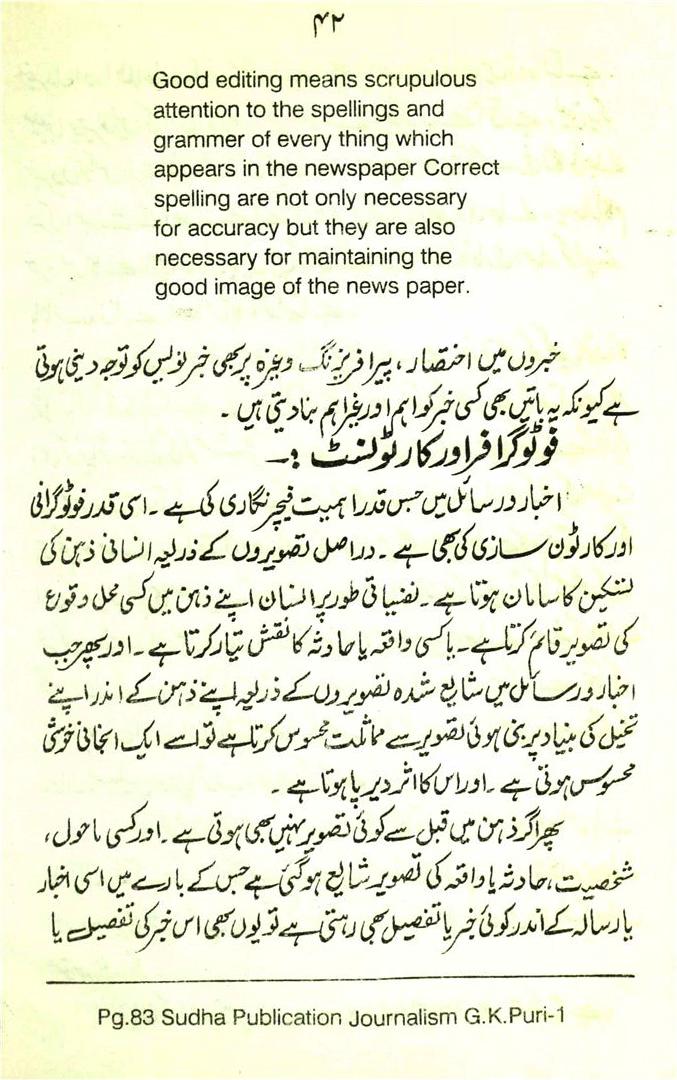 ۴۲
Good editing means scrupulous
attention to the spellings and
grammer of every thing which
appears in the newspaper Correct
spelling are not only necessary
for accuracy but they are also
necessary for maintaining the
good image of the news paper.
خبروں میں اختصار، پیرا فریزنگ وغیرہ پر بھی خبر نویس کو توجہ دینی ہوتی
ہے کیونکہ یہ باتیں بھی کسی خبر کو اہم اور غیر اہم بنا دیتی ہیں ۔
فوٹو گرافر اور کارٹولسٹ :۔
اخبار و رسائل میں جس قدر اہمیت فیچر نگاری کی ہے ۔ اسی قدر فوٹو گرافی
اور کارٹون سازی کی بھی ہے ۔ دراصل تصویروں کے ذریعہ انسانی ذہن کی
تسکین کا سامان ہوتا ہے ۔ نفسیاتی طور پر انسان اپنے ذہن میں کسی محل وقوع
کی تصویر قائم کرتا ہے ۔ یا کسی واقعہ یا حادثہ کا نقش تیار کرتا ہے ۔ اور پھر جب
اخبار و رسائل میں شایع شدہ تصویروں کے ذریعہ اپنے ذہن کے اندر اپنے
تخیل کی بنیاد پر بنی ہوئی تصویر سے مماثلت محسوس کرتا ہے تو اسے ایک انجانی خوشی
محسوس ہوتی ہے ۔ اور اس کا اثر دیر پا ہوتا ہے ۔
پھر اگر ذہن میں قبل سے کوئی تصویر نہیں بھی ہوتی ہے ۔ اور کسی ماحول،
شخصیت، حادثہ یا واقعہ کی تصویر شایع ہو گئی ہے جس کے بارے میں اسی اخبار
یا رسالہ کے اندر کوئی خبر یا تفصیل بھی رہتی ہے تو یوں بھی اس خبر کی تفصیل یا
Pg.83 Sudha Publication Journalism G.K.Puri-1